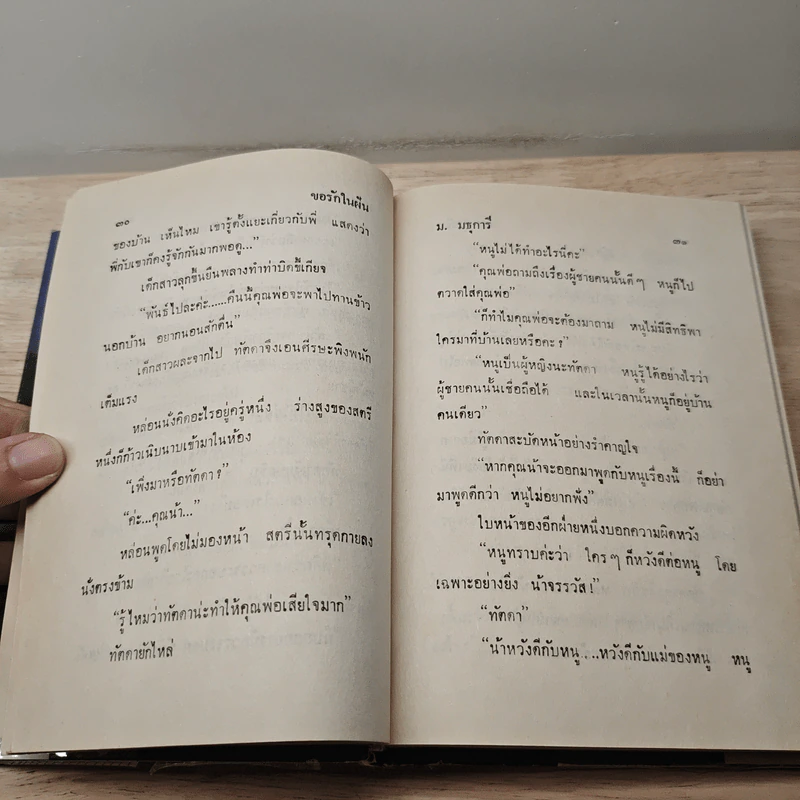 ๓๐
ขอรักในฝัน
ของบ้าน เห็นไหม เขารู้ตั้งแยะเกี่ยวกับพี่ แสดงว่า
พี่กับเขาก็คงรู้จักกันมากพอดู..."
เด็กสาวลุกขึ้นยืนพลางทำท่าบิดขี้เกียจ
"พันธ์ไปละค่ะ......คืนนี้คุณพ่อจะพาไปทานข้าว
นอกบ้าน อยากนอนสักตื่น"
เด็กสาวผละจากไป ทัตดาจึงเอนศีรษะพิงพนัก
เต็มแรง
หล่อนนั่งคิดอะไรอยู่ครู่หนึ่ง ร่างสูงของสตรี
หนึ่งก็ก้าวเนิบนาบเข้ามาในห้อง
"เพิ่งมาหรือทัตดา?"
"ค่ะ...คุณน้า..."
หล่อนพูดโดยไม่มองหน้า สตรีนั้นทรุดกายลง
นั่งตรงข้าม
"รู้ไหมว่าทัตดาน่ะทำให้คุณพ่อเสียใจมาก"
ทัตดายักไหล่
ม. มธุการี
๓๑
"หนูไม่ได้ทำอะไรนี่คะ"
"คุณพ่อถามถึงเรื่องผู้ชายคนนั้นดีๆ หนูก็ไป
ตวาดใส่คุณพ่อ"
"ก็ทำไมคุณพ่อจะต้องมาถาม หนูไม่มีสิทธิพา
ใครมาที่บ้านเลยหรือคะ?"
"หนูเป็นผู้หญิงนะทัตดา หนูรู้ได้อย่างไรว่า
ผู้ชายคนนั้นเชื่อถือได้ และในเวลานั้นหนูก็อยู่บ้าน
คนเดียว"
ทัตดาสะบัดหน้าอย่างรำคาญใจ
"หากคุณน้าจะออกมาพูดกับหนูเรื่องนี้ ก็อย่า
มาพูดดีกว่า หนูไม่อยากฟัง"
ใบหน้าของอีกฝ่ายหนึ่งบอกความผิดหวัง
"หนูทราบค่ะว่า ใครๆ ก็หวังดีต่อหนู โดย
เฉพาะอย่างยิ่ง น้าจรรวัส!"
"ทัตดา"
"น้าหวังดีกับหนู....หวังดีกับแม่ของหนู หนู